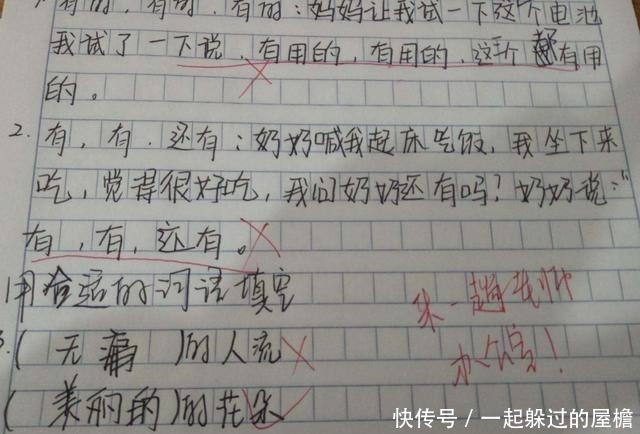 有的,有的,有的:妈妈让我试一下这个电池
我试了一下说,有用的,有用的,这个都有用
的。
2.有,有,还有:奶奶喊我起床吃饭,我坐下来
吃,觉得很好吃,我们奶奶还有吗?奶奶说:“
有,有,还有。
用合适的词语填空
(无痛)的人流
(美丽的)的花朵
来一趟老师
办公室!
快传号/一起躲过的屋檐